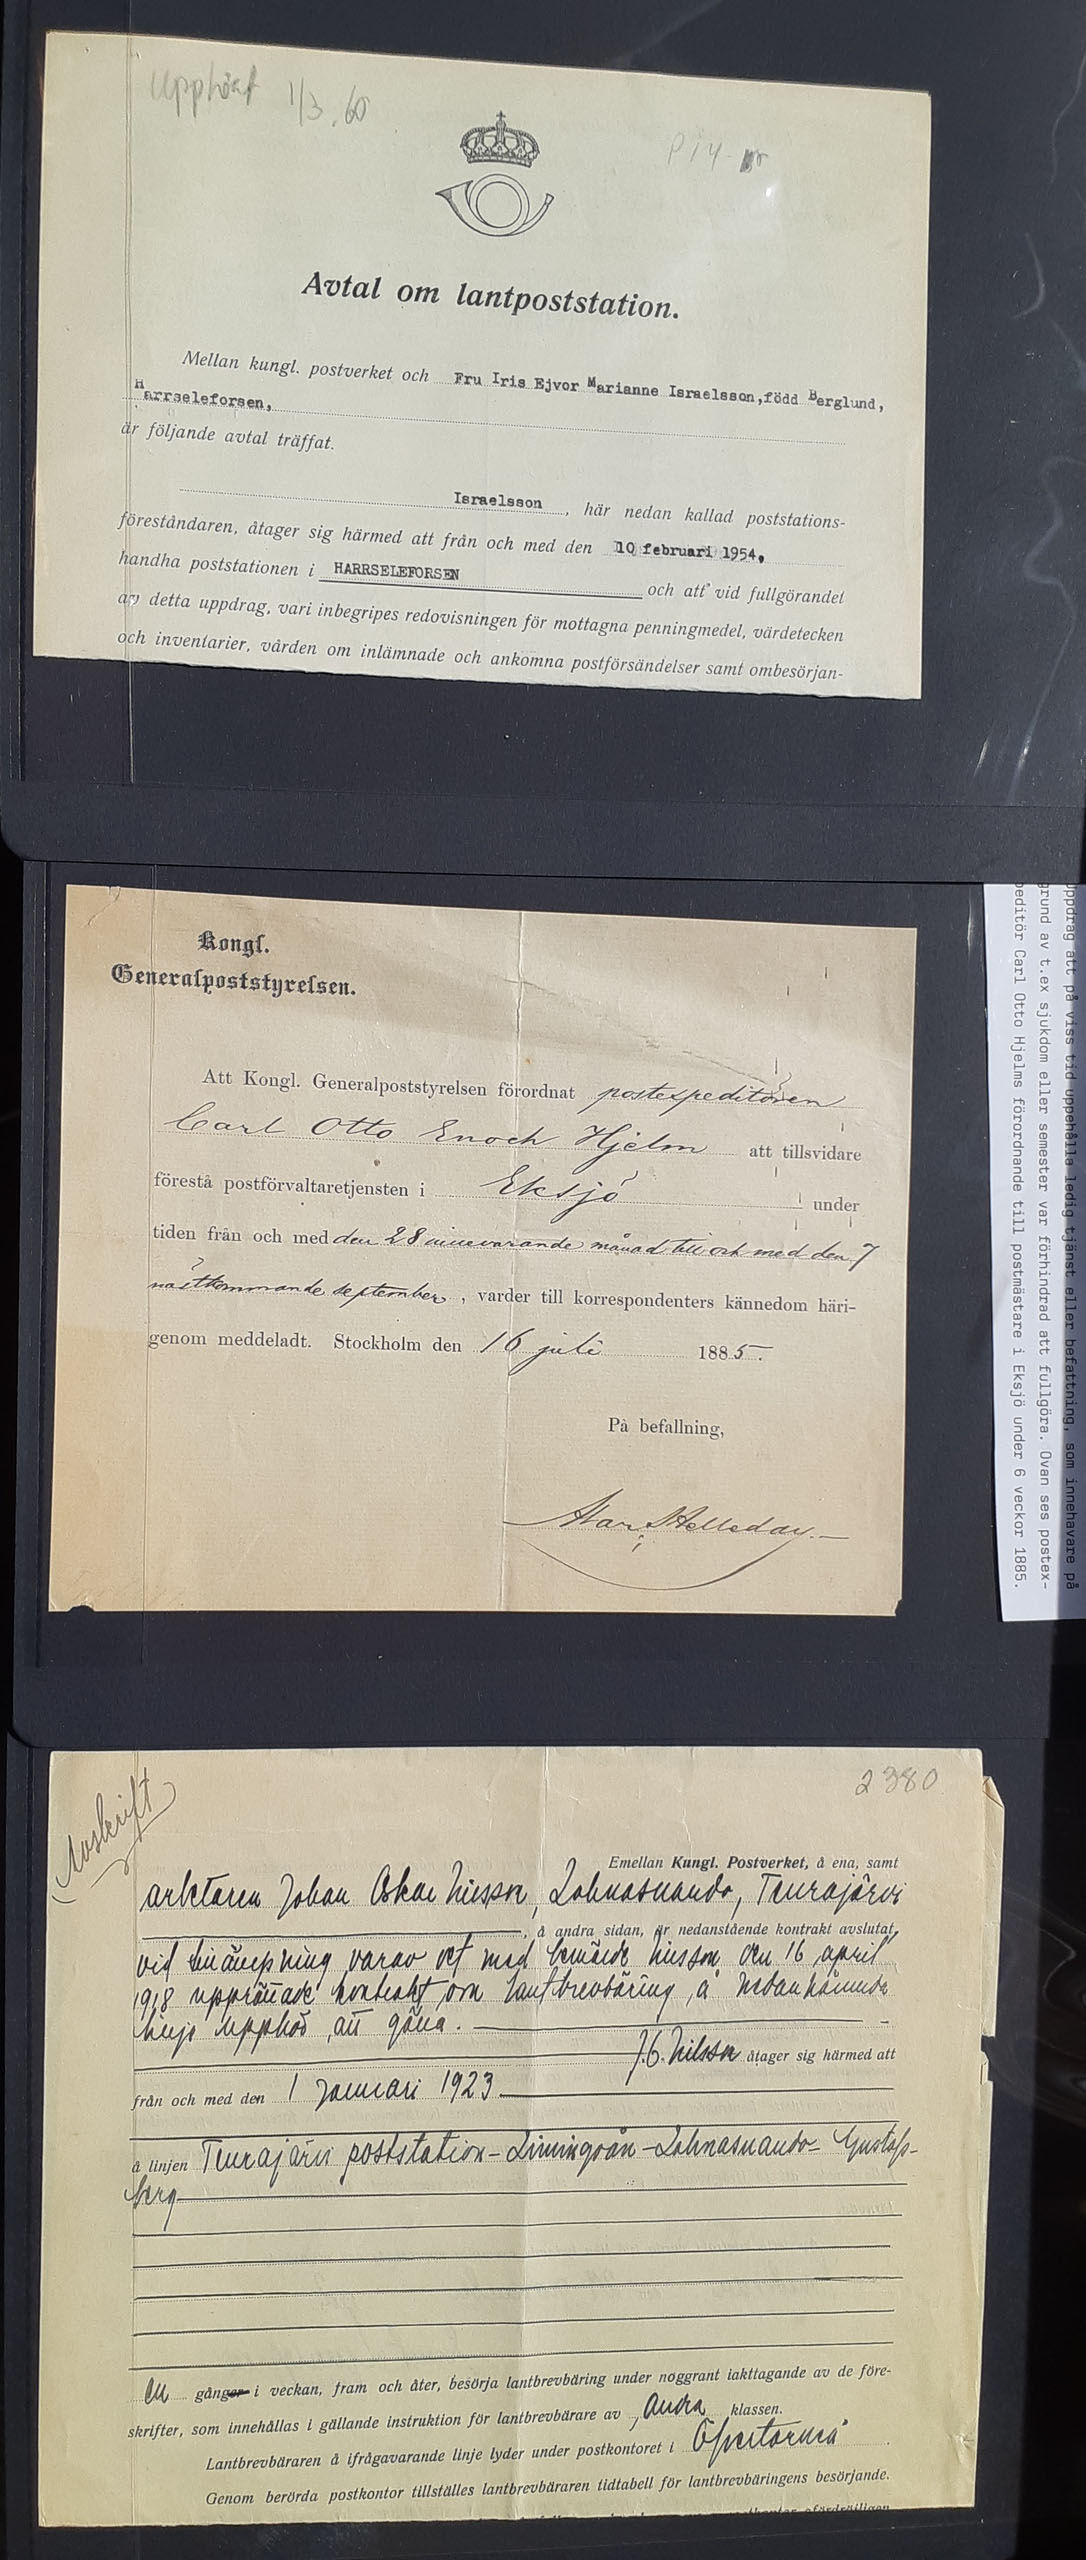 Upphört 1/3.60
P 14
Avtal om lantpoststation.
Mellan kungl. postverket och Fru Iris Ejvor Marianne Israelsson, född Berglund,
Harrseleforsen,
är följande avtal träffat.
Israelsson, här nedan kallad poststations-
föreståndaren, åtager sig härmed att från och med den 10 februari 1954,
handha poststationen i HARRSELEFORSEN och att vid fullgörandet
av detta uppdrag, vari inbegripes redovisningen för mottagna penningmedel, värdetecken
och inventarier, vården om inlämnade och ankomna postförsändelser samt ombesörjan-
Kongl.
Generalpoststyrelsen.
Att Kongl. Generalpoststyrelsen förordnat postexpeditören
Carl Otto Enoch Hjelm att tillsvidare
förestå postförvaltaretjensten i Eksjö under
tiden från och med den 28 innevarande månad till och med den 7
nästkommande september, varder till korrespondenters kännedom häri-
genom meddeladt. Stockholm den 16 juli 1885.
På befallning,
uppdrag att på viss tid uppehålla ledig tjänst eller befattning, som innehavare på
grund av t.ex sjukdom eller semester var förhindrad att fullgöra. Ovan ses postex-
peditör Carl Otto Hjelms förordnande till postmästare i Eksjö under 6 veckor 1885.
Avskrift
2380
Emellan Kungl. Postverket, å ena, samt
arbetaren Johan Oskar Nilsson, Lohnasuando, Teurajärvi
å andra sidan, är nedanstående kontrakt avslutat,
vid tillämpning varav det med bemälde Nilsson den 16 april
1918 upprättade kontrakt om lantbrevbäring å nedannämnda
linje upphör att gälla.
J.O. Nilsson åtager sig härmed att
från och med den 1 Januari 1923
å linjen Teurajärvi poststation-Livingoån-Lohnasuando-Gustafs-
berg
en gång i veckan, fram och åter, besörja lantbrevbäring under noggrant iakttagande av de före-
skrifter, som innehållas i gällande instruktion för lantbrevbärare av andra klassen.
Lantbrevbäraren å ifrågavarande linje lyder under postkontoret i Övertorneå.
Genom berörda postkontor tillställes lantbrevbäraren tidtabell för lantbrevbäringens besörjande.